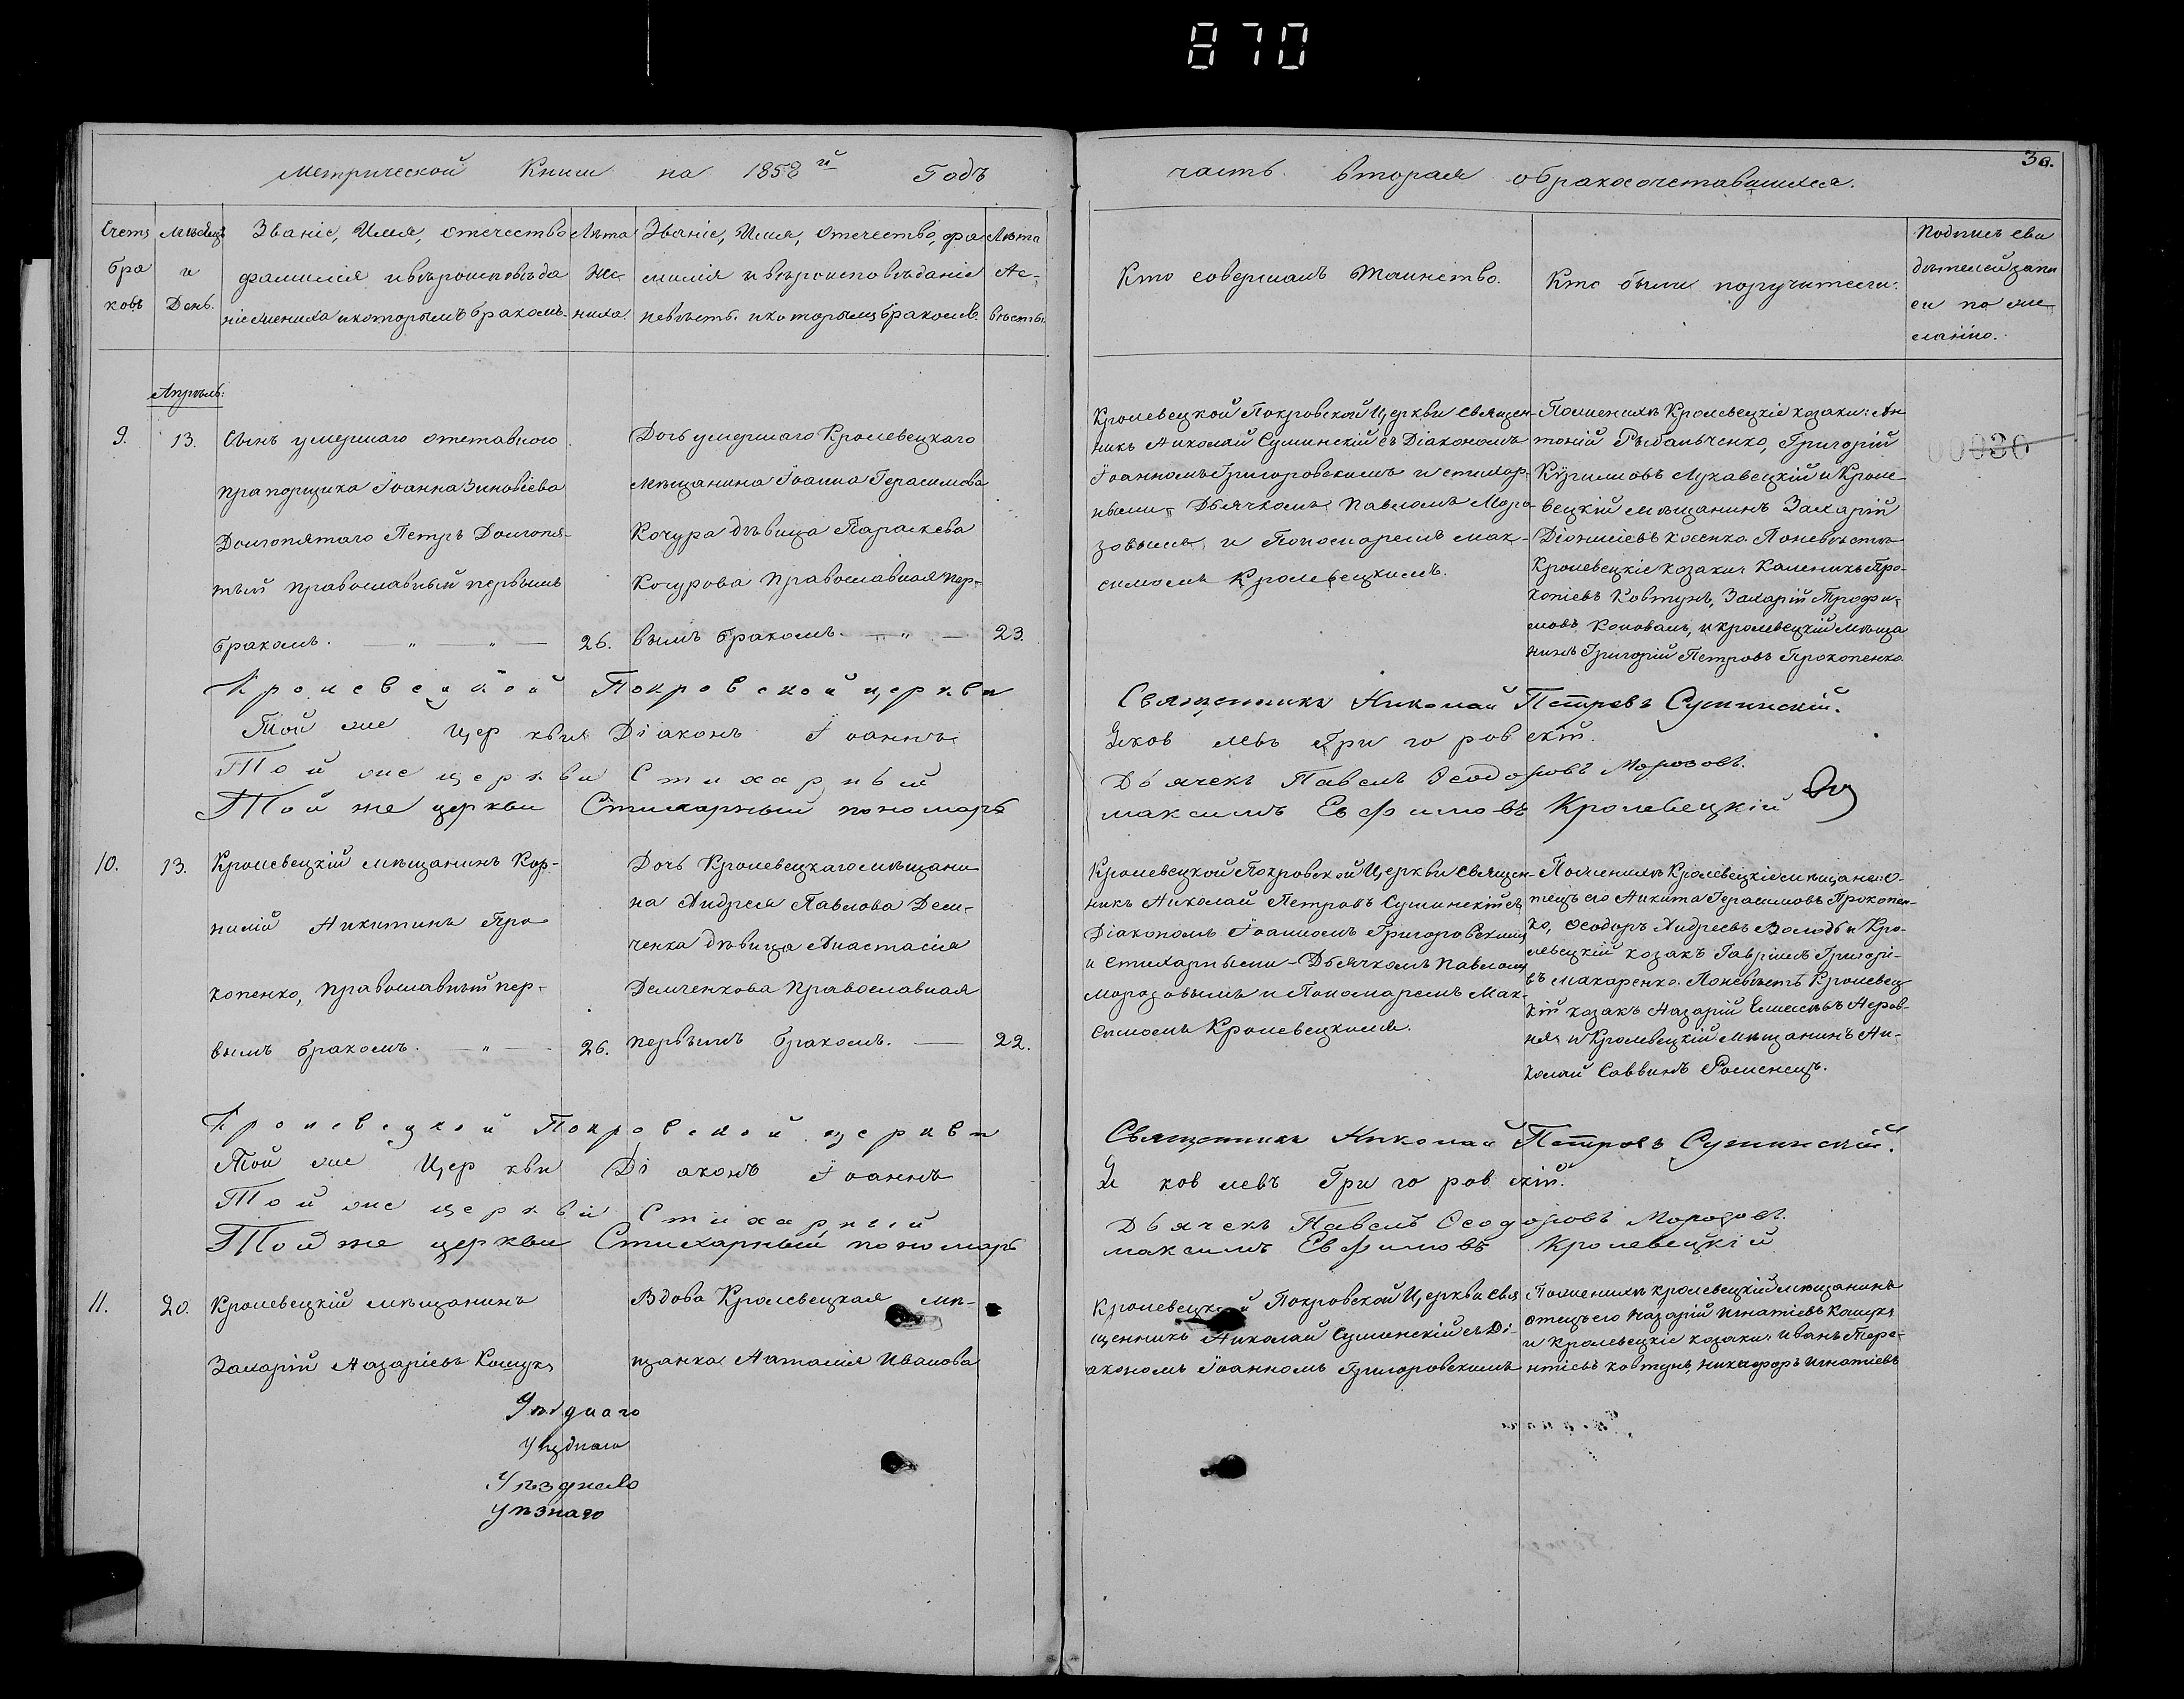 870
Метрической Книги на 1858й Годъ
часть вторая о бракосочетавшихся.
30.
Счетъ
бра
ковъ
Мѣсяцъ
и
День.
Званіе, Имя, Отечество
фамилія и вѣроисповѣда
ніе жениха и которымъ бракомъ.
Лѣта
Же-
ниха.
Званіе, Имя, Отечество, фа
милія и вѣроисповѣданіе
невѣсты. и которымъ бракомъ.
Лѣта
Не-
вѣсты.
Кто совершалъ Таинство.
Кто были поручители.
Подпись сви
дѣтелей запи
си по же
ланію.
Апрѣль.
9.
13.
Сынъ умершаго отставного
прапорщика Іоанна Зиновіева
Долгопятаго Петръ Долгопя-
тый православный первымъ
бракомъ. — „ — „ —
26.
Дочь умершаго Кролевецкаго
Мѣщанина Іоанна Герасимова
Кочура дѣвица Параскева
Кочурова православная пер-
вымъ бракомъ. — „ —
23.
Кролевецкой Покровской Церкви священ-
никъ Николай Сушинскій съ Діакономъ
Іоанномъ Григоровскимъ и стихар-
ными - Дьячкомъ Павломъ Моро-
зовымъ и Пономаремъ Мак-
симомъ Кролевецкимъ.
По женихѣ Кролевецкіе козаки: Ан
тоній Рыбальченко, Григорій
Куриловъ Лукавецкій и Кроле-
вецкій мѣщанинъ Захарій
Діонисіевъ Косенко. По невѣстѣ
Кролевецкіе козаки: Каленикъ Про-
копіевъ Ковтунъ, Захарій Трофи-
мовъ Коновалъ, и кролевецкій мѣща
нинъ Григорій Петровъ Прокопенко.
00030
Кролевецкой Покровской церкви
Священникъ Николай Петровъ Сушинскій.
Той же Церкви Діаконъ Іоаннъ
Яковлевъ Григоровскій.
Той же церкви Стихарный
Дьячекъ Павелъ Ѳеодоровъ Морозовъ.
Той же церкви Стихарный пономарь
Максимъ Евфимовъ Кролевецкій
10.
13.
Кролевецкій мѣщанинъ Кор-
нилій Никитинъ Про
копенко, православный пер-
вымъ бракомъ. — „ —
26.
Дочь Кролевецкаго мѣщани
на Андрея Павлова Дем-
ченка дѣвица Анастасія
Демченкова Православная
первымъ бракомъ. —
22.
Кролевецкой Покровской Церкви священ-
никъ Николай Петровъ Сушинскій съ
Діакономъ Іоанномъ Григоровскимъ
и стихарными - Дьячкомъ Павломъ
Морозовымъ и Пономаремъ Мак-
симомъ Кролевецкимъ.
По женихѣ Кролевецкіе мѣщане: о-
тецъ его Никита Герасимовъ Прокопен-
ко, Ѳеодоръ Андреевъ Володь и Кро-
левецкій козакъ Гавріилъ Григорі-
евъ Макаренко. По невѣстѣ Кролевец
кій козакъ Назарій
и Кролевецкій мѣщанинъ Ни-
колай Саввинъ Роменецъ.
Кролевецкой Покровской церкви
Священникъ Николай Петровъ Сушинскій.
Той же Церкви Діаконъ Іоаннъ
Яковлевъ Григоровскій.
Той же церкви Стихарный
Дьячекъ Павелъ Ѳеодоровъ Морозовъ.
Той же церкви Стихарный пономарь
Максимъ Евфимовъ Кролевецкій
11.
20.
Кролевецкій мѣщанинъ
Захарій Назаріевъ Кошукъ
Вдова Кролевецкая мѣ-
щанка Наталія Иванова
Кролевецкой Покровской Церкви свя
щенникъ Николай Сушинскій съ Ді-
акономъ Іоанномъ Григоровскимъ
По женихѣ кролевецкій мѣщанинъ
отецъ его Назарій Игнатіевъ Кошукъ
и кролевецкіе козаки: Иванъ Тере-
нтіевъ Ковтунъ, Никифоръ Игнатіевъ
Уѣзднаго
Уѣзднаго
Уѣзднаго
Уѣзнаго